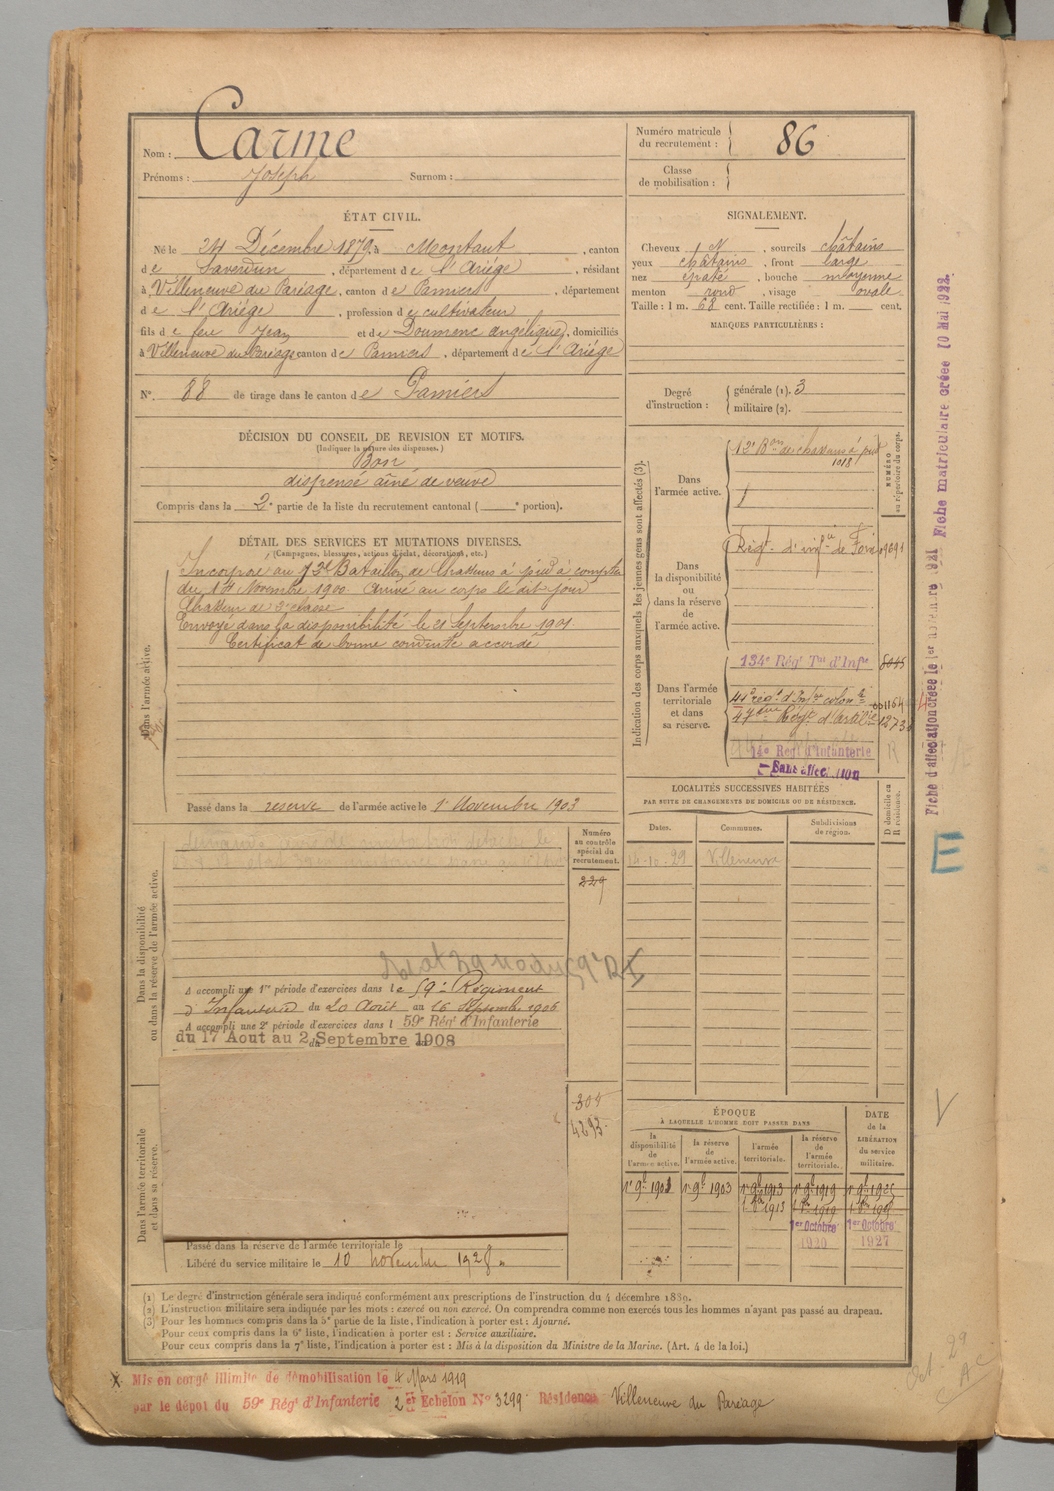 Nom : Carme
Prénoms : Joseph Surnom :
Numéro matricule du recrutement : 86
Classe de mobilisation :
ÉTAT CIVIL.
Né le 24 Décembre 1879, à Montaut, canton
de Saverdun, département de l'Ariége, résidant
à Villeneuve du Paréage, canton de Pamiers, département
de l'Ariége, profession de cultivateur
fils de feu Jean et de Doumenc angélique, domiciliés
à Villeneuve du Paréage canton de Pamiers, département de l'Ariége
N° 88 de tirage dans le canton de Pamiers
SIGNALEMENT.
Cheveux N, sourcils châtains
yeux châtains, front large
nez épaté, bouche moyenne
menton rond, visage ovale
Taille : 1 m. 68 cent. Taille rectifiée : 1 m. cent.
MARQUES PARTICULIÈRES :
Degré d'instruction : générale (1). 3
militaire (2).
DÉCISION DU CONSEIL DE REVISION ET MOTIFS.
(Indiquer la nature des dispenses.)
Bon
dispensé aîné de veuve
Compris dans la 2e partie de la liste du recrutement cantonal ( e portion).
DÉTAIL DES SERVICES ET MUTATIONS DIVERSES.
(Campagnes, blessures, actions d'éclat, décorations, etc.)
Dans l'armée active.
Incorporé au Bataillon de Chasseurs à pied à compter
du Novembre 1900 Arrivé au corps le dit jour
Chasseur de classe
Envoyé dans la disponibilité le 21 Septembre 1901
Certificat de bonne conduite accordé
Passé dans la reserve de l'armée active le 1er Novembre 1903
Indication des corps auxquels les jeunes gens sont affectés (3).
NUMÉRO au répertoire du corps.
Dans l'armée active.
Bon de chasseurs à pied
1018
Dans la disponibilité ou dans la réserve de l'armée active.
Régt d'infie de Foix
Dans l'armée territoriale et dans sa réserve.
134e Régt Tal d'Infie
8045
régt d'Infie colonle
Régt d'Artie
14e Régt d'Infanterie
Sans affectation
LOCALITÉS SUCCESSIVES HABITÉES
PAR SUITE DE CHANGEMENTS DE DOMICILE OU DE RÉSIDENCE.
Dates. Communes. Subdivisions de région. D domicile ou R résidence.
14-10-29 Villeneuve
Dans la disponibilité ou dans la réserve de l'armée active.
Numéro au contrôle spécial du recrutement.
229
A accompli une 1re période d'exercices dans le 59e Régiment
d'Infanterie du 20 Août au 16 Septembre 1906
A accompli une 2e période d'exercices dans l 59e Régt d'Infanterie
du 17 Aout au 2 Septembre 1908
Dans l'armée territoriale et dans sa réserve.
304
4293
Passé dans la réserve de l'armée territoriale le
Libéré du service militaire le 10 novembre 1928
ÉPOQUE
À LAQUELLE L'HOMME DOIT PASSER DANS
la disponibilité de l'armée active. la réserve de l'armée active. l'armée territoriale. la réserve de l'armée territoriale. DATE de la LIBÉRATION du service militaire.
1er 9bre 1901 1er 9bre 1903 1er 9bre 1913 1er 9bre 1919 1er 9bre 1925
1er Octobre 1er Octobre
1920 1927
(1) Le degré d'instruction générale sera indiqué conformément aux prescriptions de l'instruction du 4 décembre 1889.
(2) L'instruction militaire sera indiquée par les mots : exercé ou non exercé. On comprendra comme non exercés tous les hommes n'ayant pas passé au drapeau.
(3) Pour les hommes compris dans la 5e partie de la liste, l'indication à porter est : Ajourné.
Pour ceux compris dans la 6e liste, l'indication à porter est : Service auxiliaire.
Pour ceux compris dans la 7e liste, l'indication à porter est : Mis à la disposition du Ministre de la Marine. (Art. 4 de la loi.)
X Mis en congé illimité de démobilisation le 4 Mars 1919
par le dépot du 59e Régt d'Infanterie 2 er Echelon N° 3299 Résidence Villeneuve du Paréage
Fiche d'affectation créée le 1er 1921 Fiche matriculaire créée 10 Mai 1922.
E
V
Oct. 29